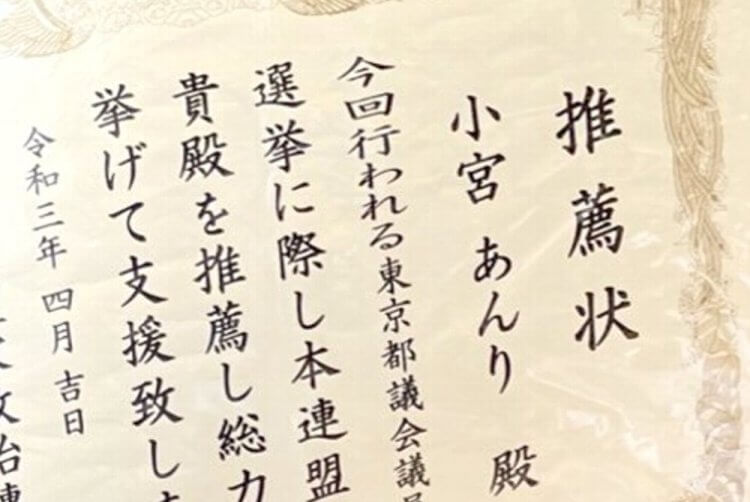 推薦状
小宮 あんり 殿
今回行われる東京都議会議員
選挙に際し本連盟
貴殿を推薦し総力
挙げて支援致しま
令和三年 四月 吉日
政治連